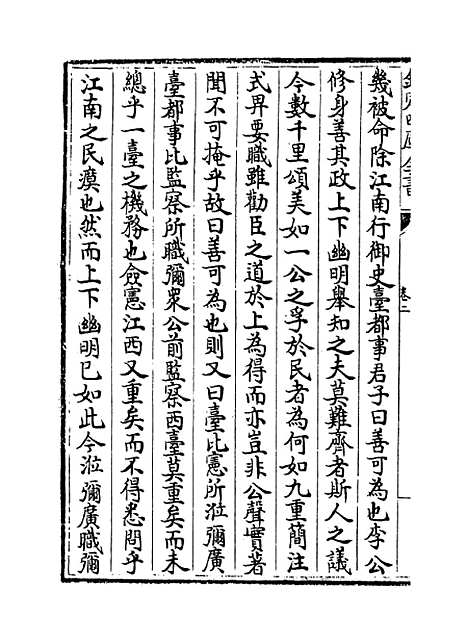 欽定四庫全書
卷二
幾被命除江南行御史臺都事君子曰善可為也李公
修身善其政上下幽明舉知之夫莫難齊者斯人之議
今數千里頌美如一公之孚於民者為何如九重簡注
式畀要職雖勸臣之道於上為得而亦豈非公聲實著
聞不可掩乎故曰善可為也則又曰臺比憲所涖彌廣
臺都事比監察所職彌衆公前監察西臺莫重矣而未
總乎一臺之機務也僉憲江西又重矣而不得悉問乎
江南之民瘼也然而上下幽明已如此今涖彌廣職彌